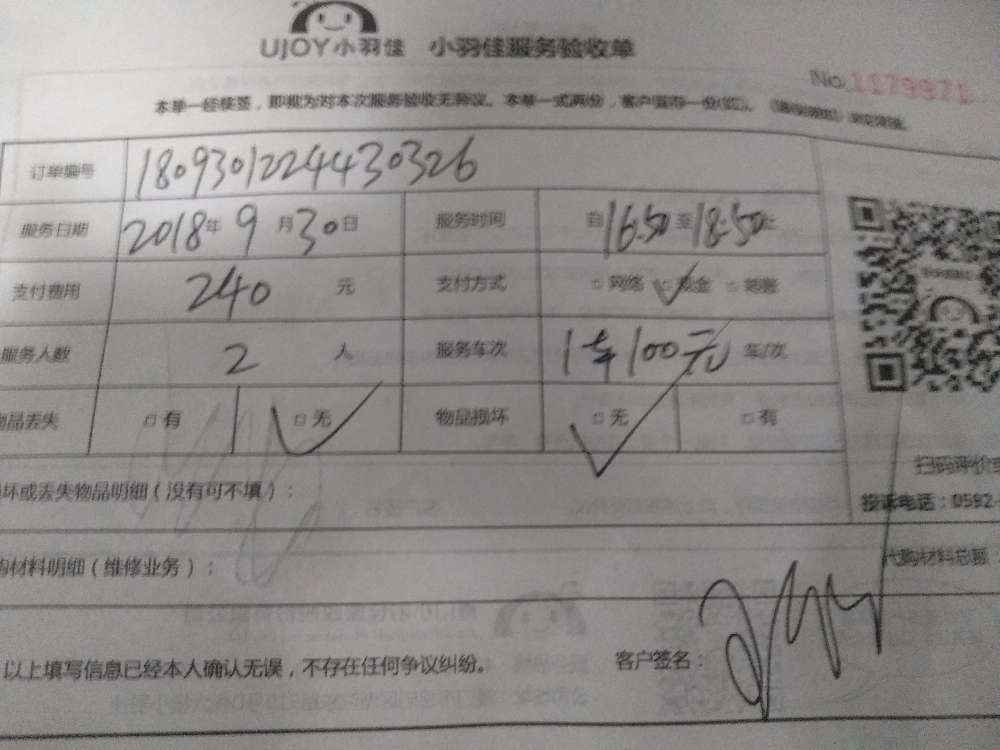 UJOY小羽佳 小羽佳服务验收单
No.1179971
本单一经核签，即视为对本次服务验收无异议。本单一式两份，客户留存一份
订单编号 180930122443 0326
服务日期 2018年9月30日 服务时间 自16:50至18:50止
支付费用 240元 支付方式 □网络 □现金 □转账
服务人数 2人 服务车次 1车100元 车/次
物品丢失 □有 □无 物品损坏 □无 □有
坏或丢失物品明细（没有可不填）：
扫码评价
投诉电话：0592
购材料明细（维修业务）： 代购材料总额：
以上填写信息已经本人确认无误，不存在任何争议纠纷。 客户签名：